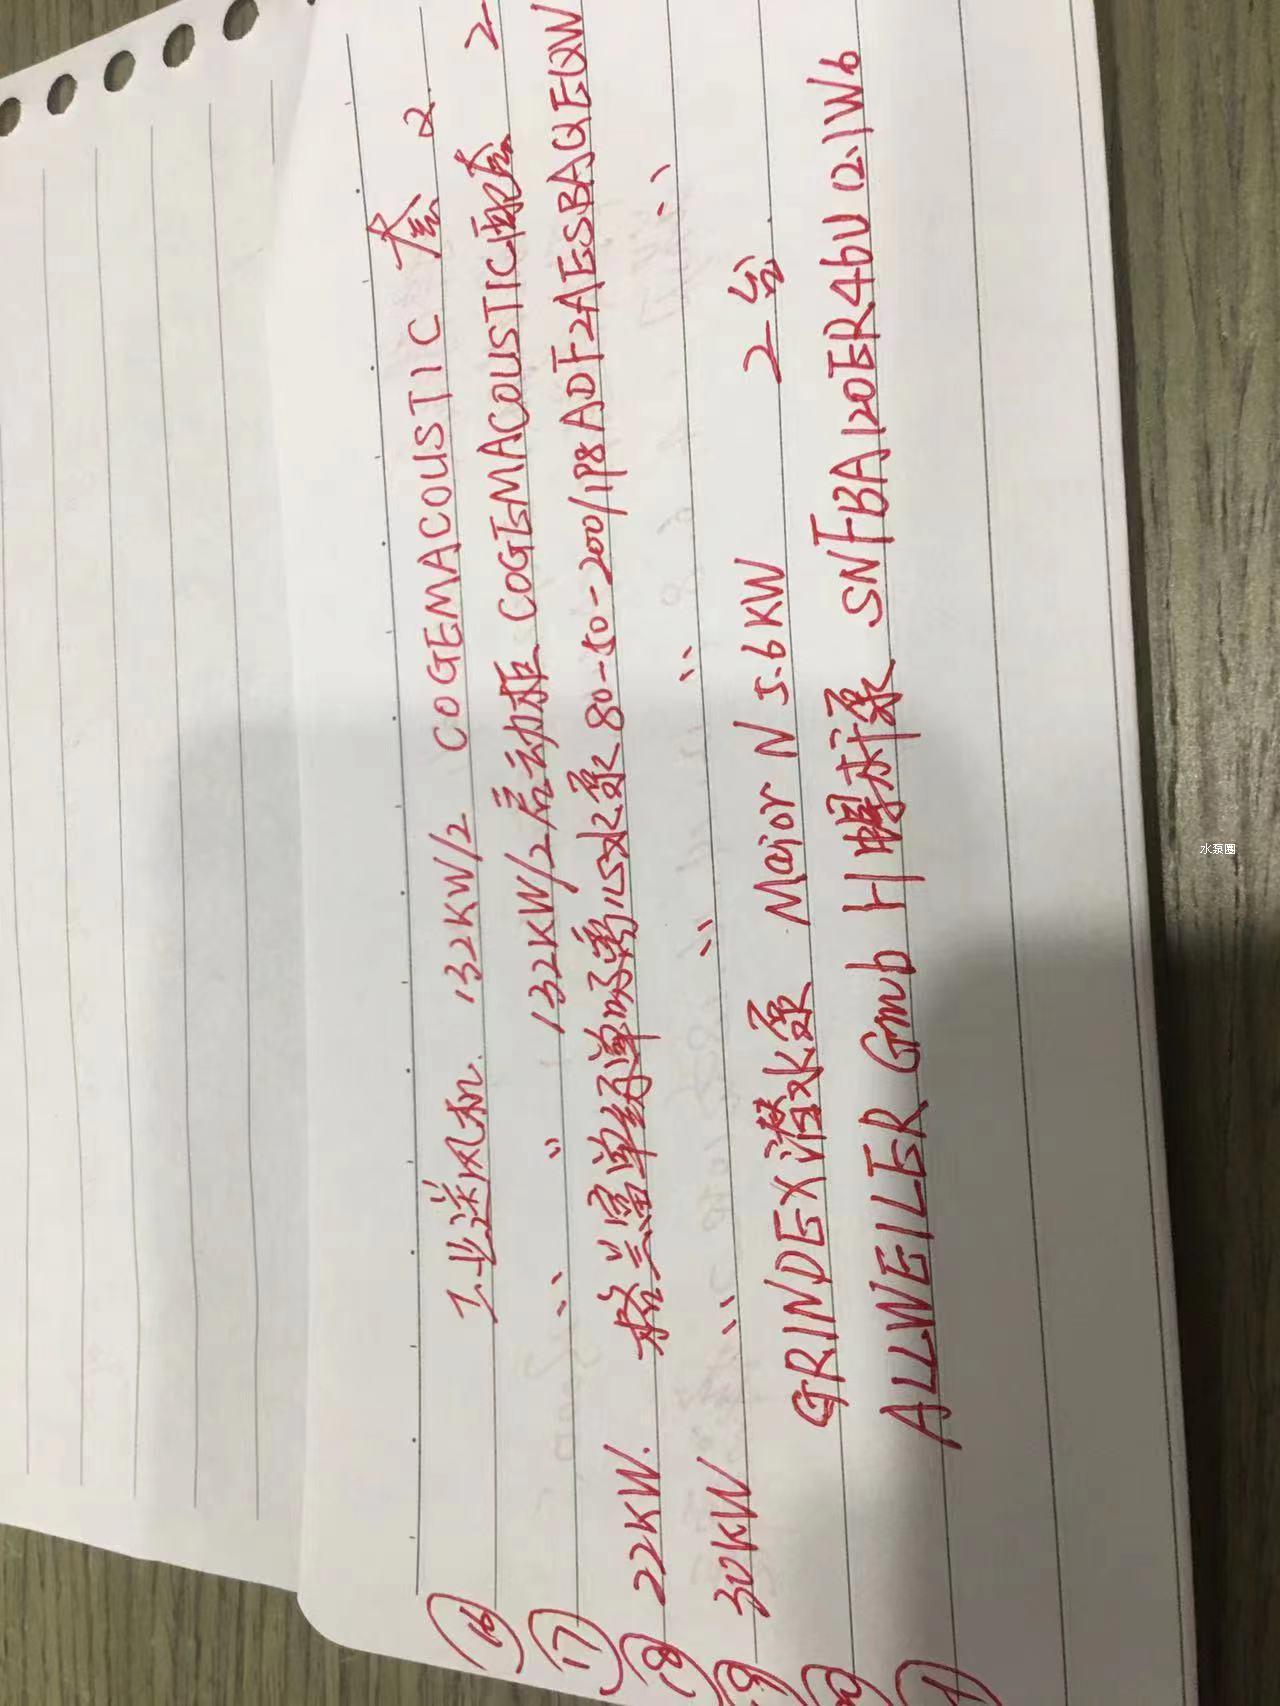 ⑯ 工业送风机. 132KW/2 COGEMACOUSTIC 套 2
⑰ 〃 〃 132KW/2启动柜 COGEMACOUSTIC配套 2
⑱ 22KW. 格兰富单级单吸离心水泵80-50-200/198ADF2AESBAQEQW
⑲ 30KW 〃 〃 〃 〃
⑳ GRINDEX潜水泵 Major N 5.6KW 2台
ALLWEILER GmbH 螺杆泵 SNFBA120ER46U12.1W6
水泵圈